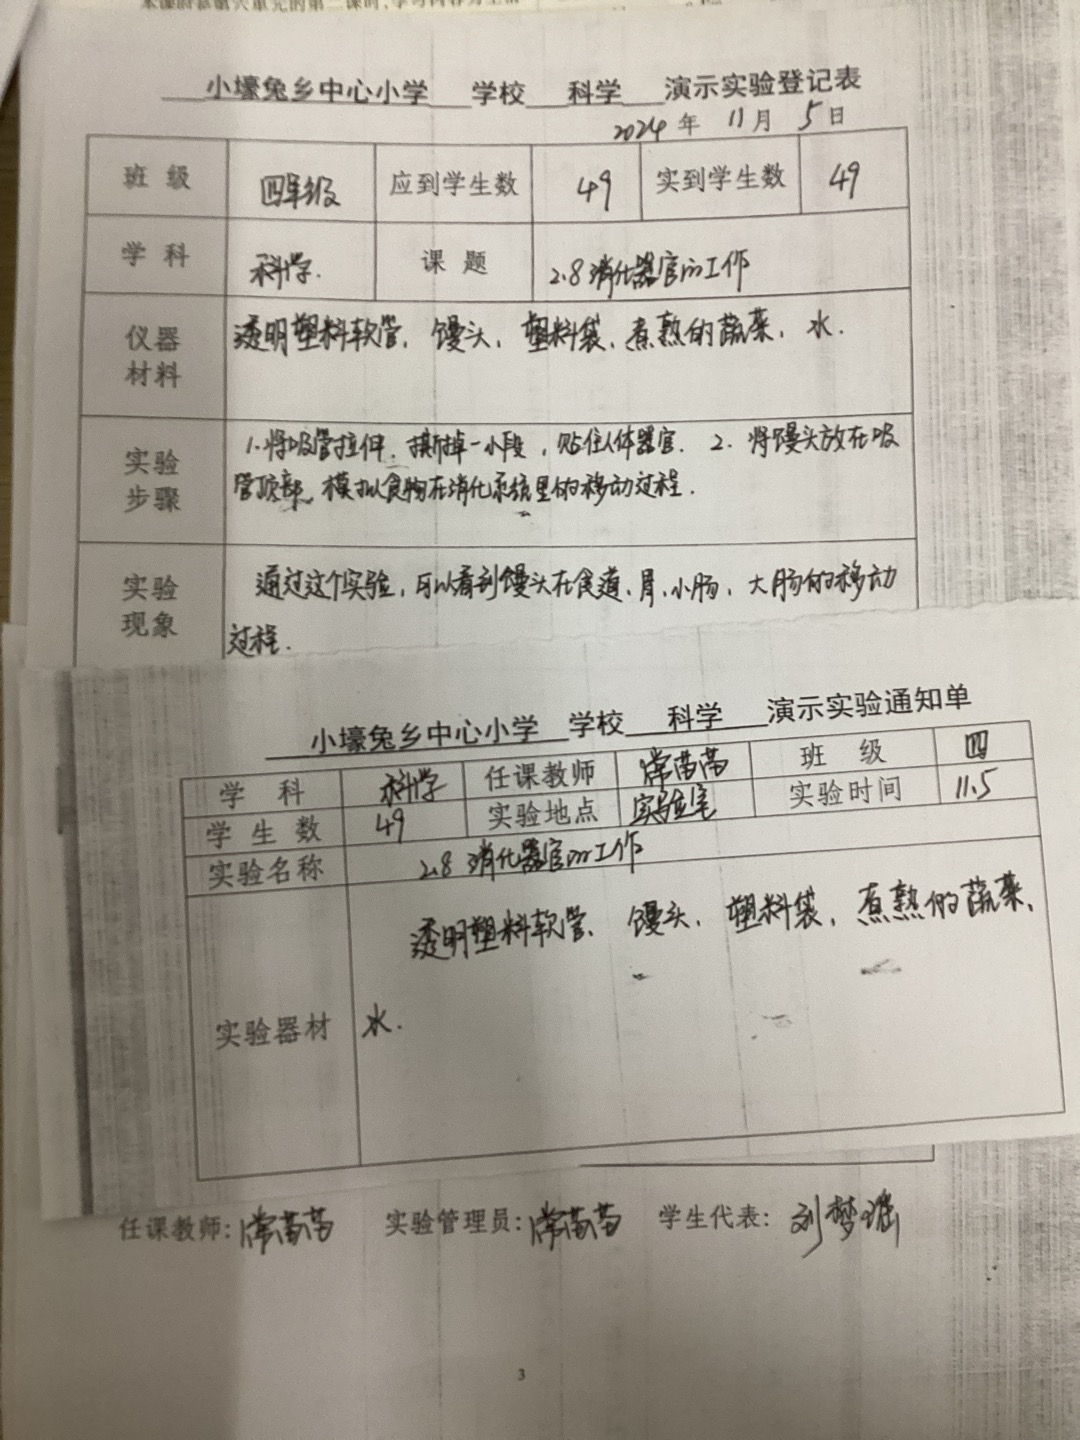 小壕兔乡中心小学 学校 科学 演示实验登记表
2024年 11月 5日
班 级 四年级 应到学生数 49 实到学生数 49
学 科 科学. 课 题 2.8 消化器官的工作
仪器
材料
透明塑料软管、馒头、塑料袋、煮熟的蔬菜、水.
实验
步骤
1.将吸管拉伸、撕掉一小段，贴住人体器官. 2.将馒头放在吸
管顶部、模拟食物在消化系统里的移动过程.
实验
现象
通过这个实验，可以看到馒头在食道、胃、小肠、大肠的移动
过程.
小壕兔乡中心小学 学校 科学 演示实验通知单
学 科 科学 任课教师 常苗苗 班 级 四
学 生 数 49 实验地点 实验室 实验时间 11.5
实验名称 2.8 消化器官的工作
实验器材
透明塑料软管、馒头、塑料袋、煮熟的蔬菜、
水.
任课教师: 常苗苗 实验管理员: 常苗苗 学生代表: 刘梦瑶
3